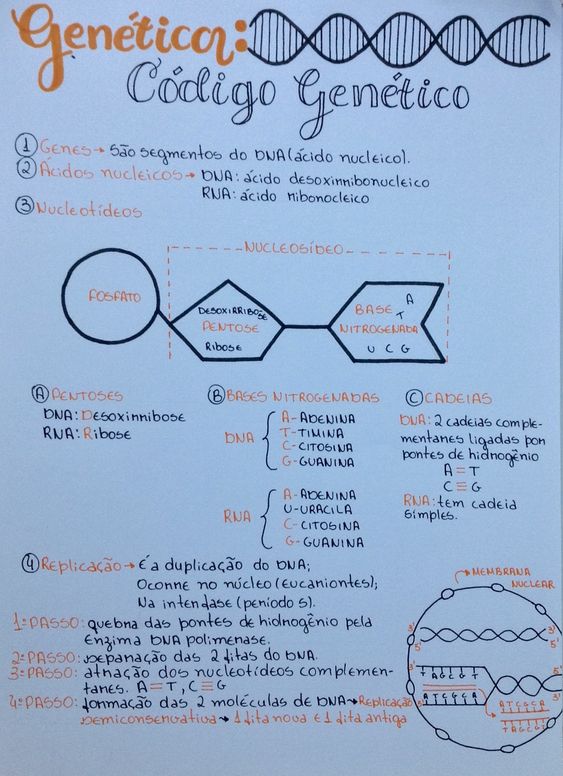 Genética:
Código Genético
① Genes → São segmentos do DNA (ácido nucleico).
② Ácidos nucleicos → DNA: ácido desoxirribonucleico
RNA: ácido ribonocleico
③ Nucleotídeos
NUCLEOSÍDEO
FOSFATO
DESOXIRRIBOSE
PENTOSE
Ribose
BASE
NITROGENADA
A
T
U C G
Ⓐ PENTOSES
DNA: Desoxirribose
RNA: Ribose
Ⓑ BASES NITROGENADAS
DNA
A-ADENINA
T-TIMINA
C-CITOSINA
G-GUANINA
RNA
A-ADENINA
U-URACILA
C-CITOSINA
G-GUANINA
Ⓒ CADEIAS
DNA: 2 cadeias comple-
mentares ligadas por
pontes de hidrogênio
A=T
C≡G
RNA: tem cadeia
simples.
④ Replicação → É a duplicação do DNA;
Ocorre no núcleo (eucariontes);
Na interfase (período S).
1º PASSO: quebra das pontes de hidrogênio pela
Enzima DNA polimerase.
2º PASSO: separação das 2 fitas do DNA.
3º PASSO: atração dos nucleotídeos complemen-
tares. A=T, C≡G
4º PASSO: formação das 2 moléculas de DNA → Replicação
semiconservativa → 1 fita nova e 1 fita antiga
MEMBRANA
NUCLEAR
3'
5'
3'
5'
3'
TAGCGT
ATCGCA
5'
5'
3'
ATCGCA